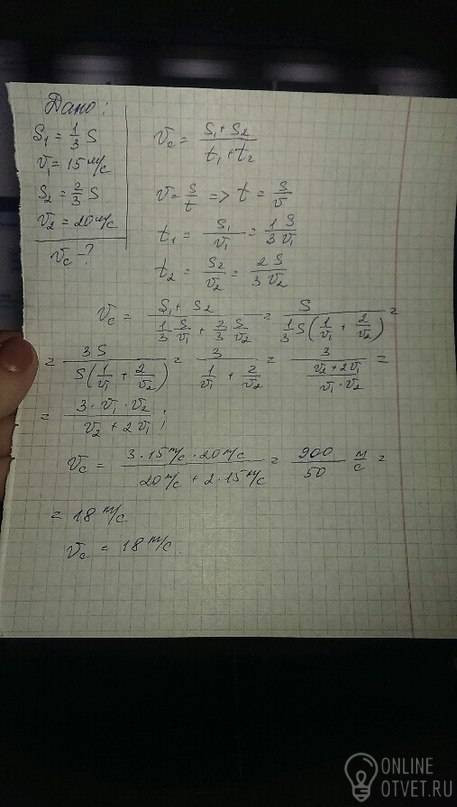 Дано:
S₁ = 1/3 S
v₁ = 15 м/с
S₂ = 2/3 S
v₂ = 20 м/с
v_c - ?
v_c = (S₁ + S₂)/(t₁ + t₂)
v = S/t => t = S/v
t₁ = S₁/v₁ = 1/3 S/v₁
t₂ = S₂/v₂ = 2/3 S/v₂
v_c = (S₁ + S₂)/(1/3 S/v₁ + 2/3 S/v₂) = S/(1/3 S(1/v₁ + 2/v₂)) =
= 3S/(S(1/v₁ + 2/v₂)) = 3/(1/v₁ + 2/v₂) = 3/((v₂ + 2v₁)/(v₁ · v₂)) =
= (3 · v₁ · v₂)/(v₂ + 2v₁);
v_c = (3 · 15 м/с · 20 м/с)/(20 м/с + 2 · 15 м/с) = 900/50 м/с =
= 18 м/с.
v_c = 18 м/с.
ONLINE
OTVET.RU